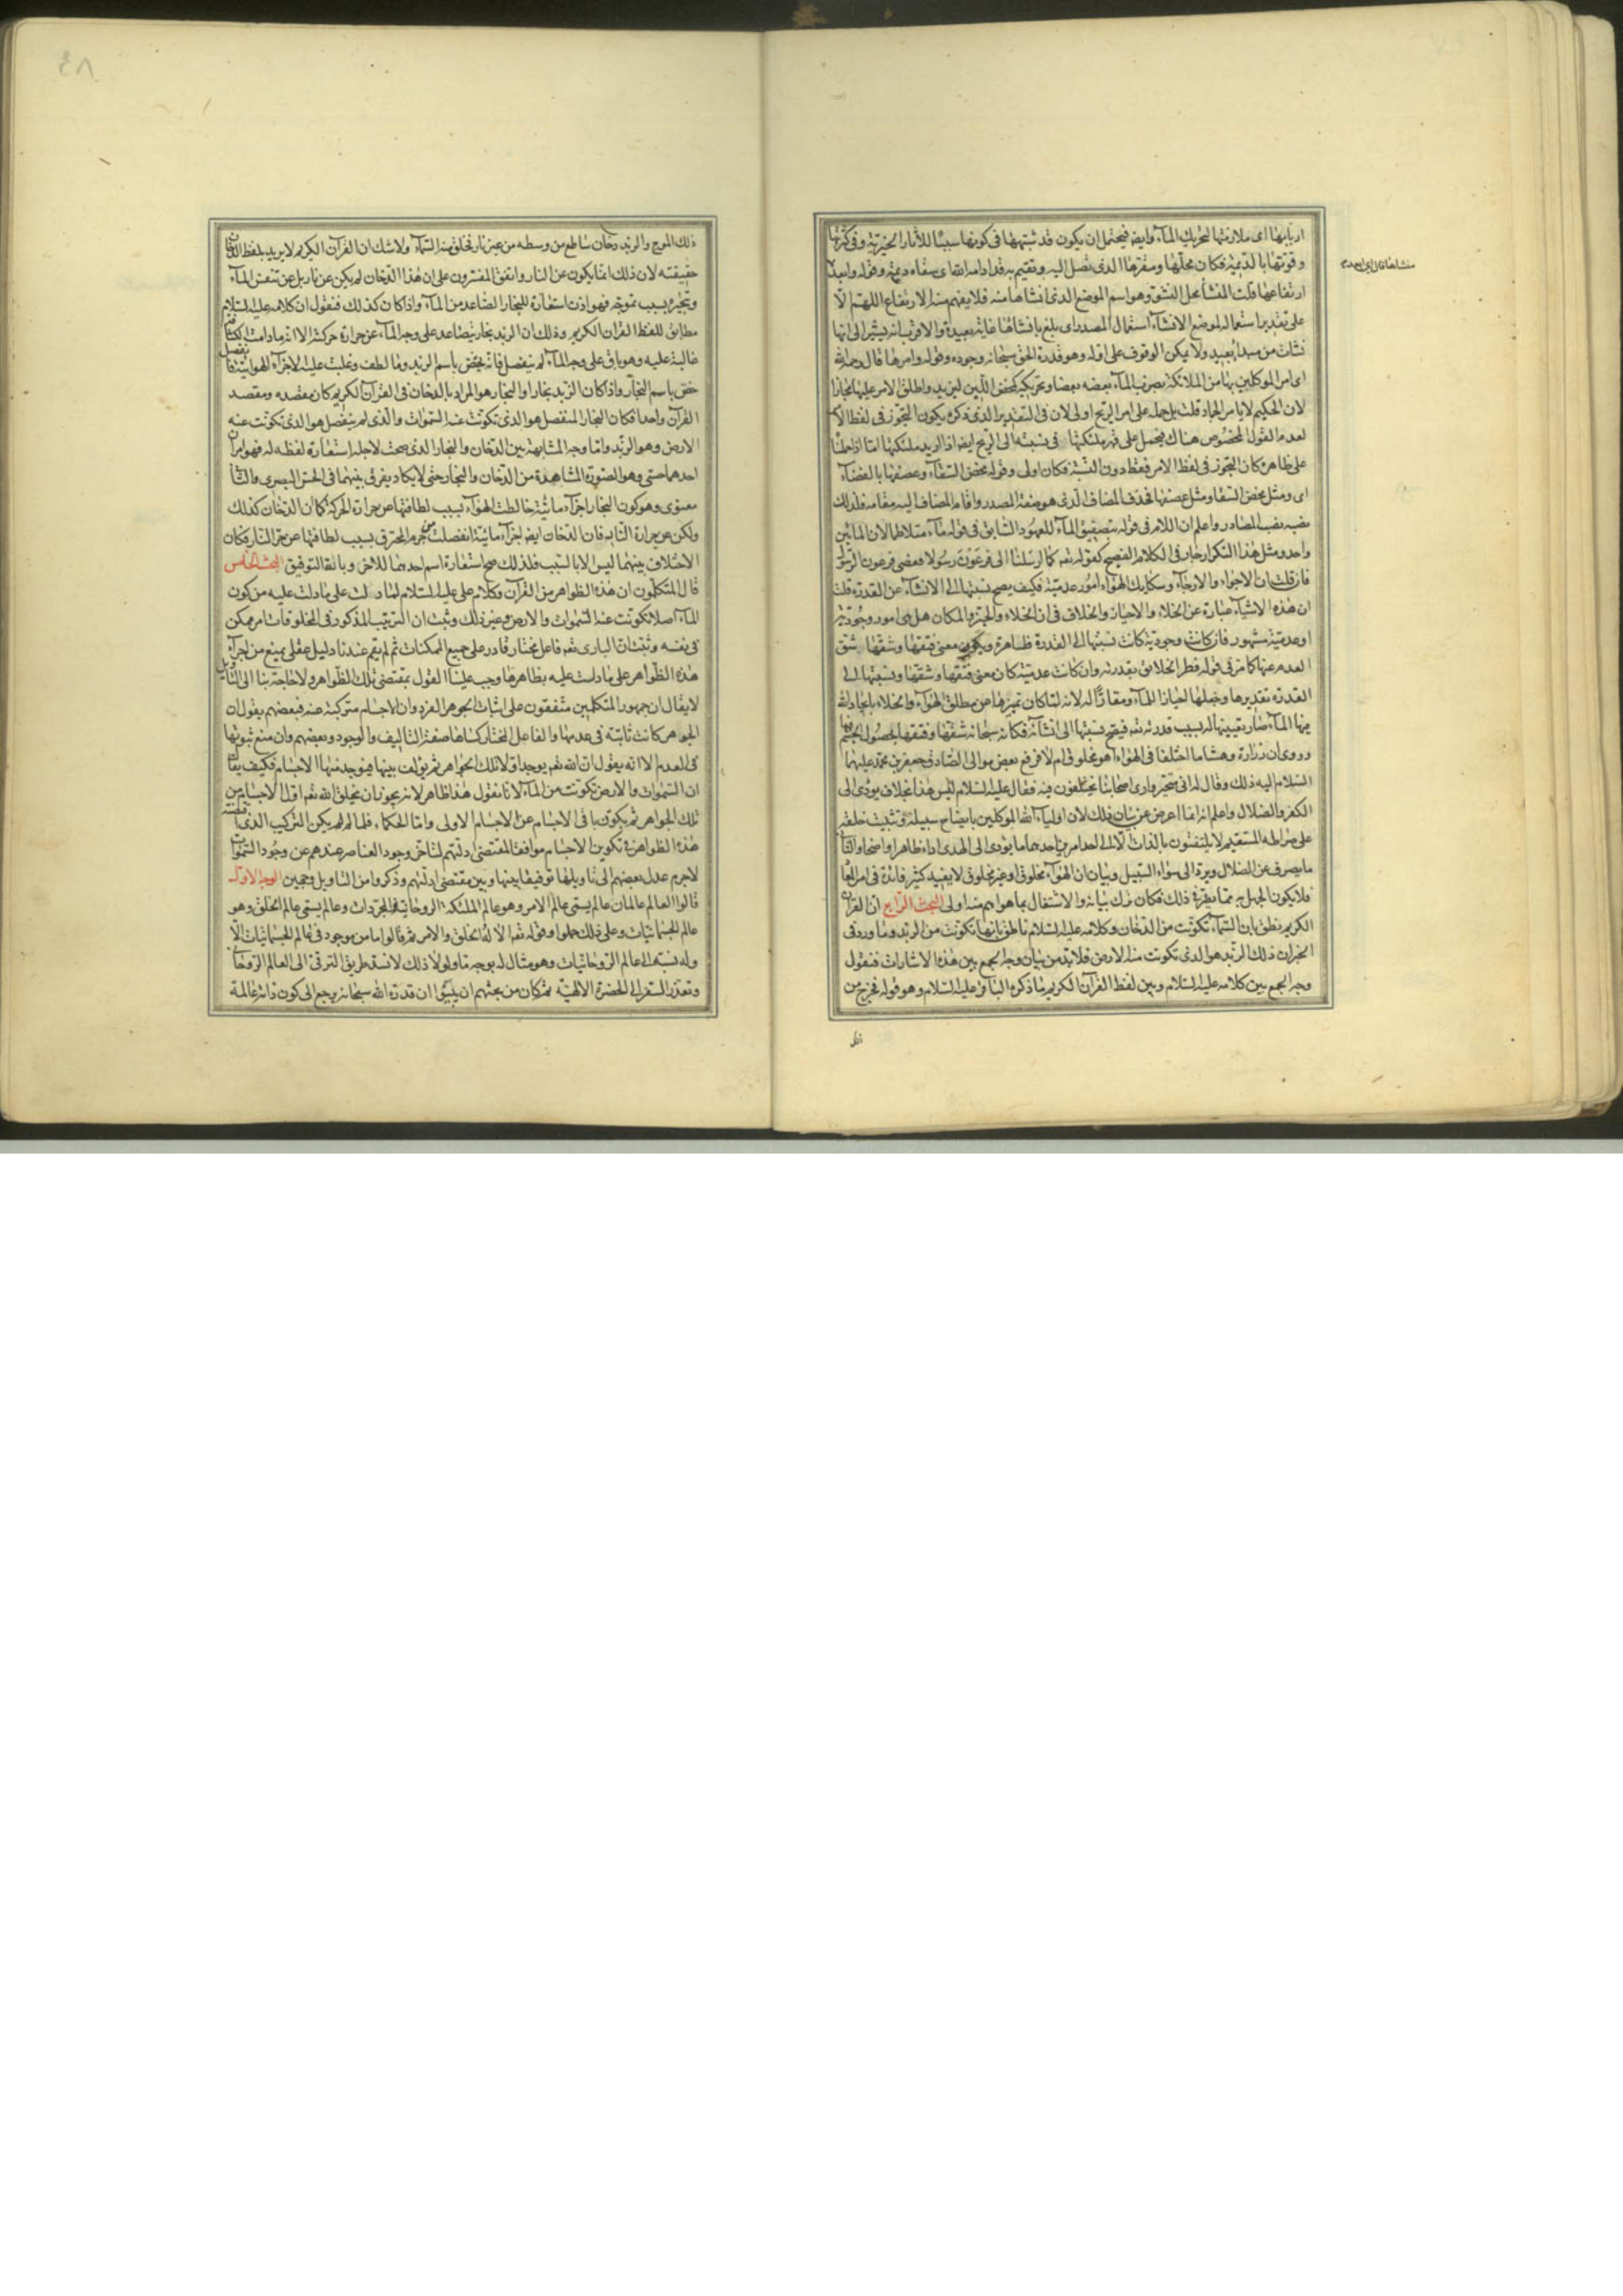 اربابها اى ملازمتها لتحريك المآء وايضا فيحتمل ان يكون قد شبهها فى كونها سببًا للآثار الخيرية وفى كثرتها
وقوتها بالديمة فكان محلّها ومقرها الذى تصل اليه وتقيم به قد ادامه الله اى سقاه ديمة وقوله وابعد
منشاها قال اى ابعد
ارتفاعها قلت المنشأ محل النشو وهو اسم الموضع الذى انشاها منه فلا يفهم منه الارتفاع اللهم الّا
على تقدير استعماله لموضع الانشآء استعمال المصدر اى بلغ بانشائها غاية بعيدة والاقرب انه يشير الى انها
نشات من مبدأ بعيد ولا يمكن الوقوف على اوله وهو قدرة الحق سبحانه وجوده وقوله وامرها قال رحمه الله
اى امر الموكلين بها من الملائكة بضرب المآء بعضه بعضا وتحريكه كمخض اللبن للزبد واطلق الامر عليها مجازا
لان الحكيم لا يامر الجماد قلت بل حمله على امر الريح اولى لان فى التقدير الذى ذكره يكون التجوز فى لفظ الامر
لعدم القول المخصوص هناك فيحمل على قهر ملئكتها فى نسبته الى الريح ايضا اذ اريد ملئكتها اما اذا حملنا
على ظاهره كان التجوز فى لفظ الامر فقط دون النسبة فكان اولى وقوله مخض السقآء وعصفها بالفضآء
اى ومثل مخض السقا ومثل عصفها فحذف المضاف الذى هو صفة المصدر واقام المضاف اليه مقامه فلذلك
نصبه نصب المصادر واعلم ان اللام فى قوله بتصفيق المآء للعهود السابق فى قوله مآء متلاطما لان المائين
واحد ومثل هذا التكرار جار فى الكلام الفصيح كقوله تعه كما ارسلنا الى فرعون رسولا فعصى فرعون الرسول
فان قلت ان الاجواء والارجآء وسكايك الهواء امور عدمية فكيف يصح نسبتها الى الانشآء عن القدرة قلت
ان هذه الاشيآء عبارة عن الخلاء والاحياز والخلاف فى ان الخلاء والحيز والمكان هل هى امور وجودية
او عدمية مشهور فان كانت وجودية كانت نسبتها الى القدرة ظاهرة ويكون معنى فتقها وشقها شق
العدم عنها كما مر فى قوله فطر الخلائق بقدرته وان كانت عدمية كان معنى فتقها وشقها ونسبتها الى
القدرة تقديرها وجعلها احيازا للمآء ومقارّا له لانه لما كان تميزها عن مطلق الهوآء والخلاء بايجاد الله
فيها المآء صار تعيينها له بسبب قدرته تعه فيصح نسبتها الى انشآئه فكانه سبحانه شقها وفتقها بحصول الجسم فيها
وروى ان زرارة وهشاما اختلفا فى الهواء اهو مخلوق ام لا فرفع بعض موالى الصادق جعفر بن محمد عليهما
السلام اليه ذلك وقال له انى متحير وارى اصحابنا يختلفون فيه فقال عليه السلام ليس هذا بخلاف يودى الى
الكفر والضلال واعلم انه انما اعرض عن بيان ذلك لان اوليآء الله الموكلين بايضاح سبيله وتثبيت خلقه
على صراطه المستقيم لا يلتفتون بالذات الا الى احد امرين احدهما ما يودى الى الهدى اداء ظاهرا واضحا والثانى
ما يصرف عن الضلال ويرد الى سواء السبيل وبيان ان الهوآء مخلوق او غير مخلوق لا يفيد كثير فائدة فى امر المعاد
فلا يكون الجهل به مما يضر فى ذلك فكان ترك بيانه والاشتغال بما هو اهم منه اولى البحث الرابع ان القران
الكريم نطق بان السّمآء تكونت من الدخان وكلامه عليه السلام ناطق بانها تكونت من الزبد وما ورد فى
الخبر ان ذلك الزبد هو الذى تكونت منه الارض فلا بد من بيان وجه الجمع بين هذه الاشارات فنقول
وجه الجمع بين كلامه عليه السلام وبين لفظ القرآن الكريم ما ذكره الباقر عليه السلام وهو قوله فخرج من
ذلك
٤٨
ذلك الموج والزبد دخان ساطع من وسطه من غير نار فخلق منه السّمآء ولا شك ان القرآن الكريم لا يريد بلفظ الدخان
حقيقته لان ذلك انما يكون عن النار واتفق المفسرون على ان هذا الدخان لم يكن عن نار بل عن تنفس المآء
وتبخيره بسبب تموجه فهو اذن استعارة للبخار الصاعد من المآء واذا كان كذلك فنقول ان كلامه عليه السلام
مطابق للفظ القران الكريم وذلك ان الزبد بخار يتصاعد على وجه المآء عن حرارة حركته الا انه ما دامت الكثافة
غالبة عليه وهو باق على وجه المآء لم ينفصل فانه يخص باسم الزبد وما لطف وغلبت عليه الاجزآء الهوائية فانفصل
خص باسم البخار واذا كان الزبد بخارا والبخار هو المراد بالدخان فى القرآن الكريم كان مقصده ومقصد
القرآن واحدا فكان البخار المنفصل هو الذى تكونت عنه السّموات والذى لم ينفصل هو الذى تكونت عنه
الارض وهو الزبد واما وجه المشابهة بين الدخان والبخار الذى صحت لاجله استعارة لفظه له فهو امران
احدهما حسّى وهو الصورة المشاهدة من الدخان والبخار حتى لا يكاد يفرق بينهما فى الحس البصرى والثانى
معنوى وهو كون البخار اجزآء مائية خالطت الهوآء بسبب لطافتها عن حرارة الحركة كما ان الدخان كذلك
ولكن عن حرارة النار فان الدخان ايضا اجزآء مائية انفصلت من جرم المحترق بسبب لطافتها عن حر النار فكان
الاختلاف بينهما ليس الا بالسبب فلذلك صح استعارة اسم احدهما للاخر وبالله التوفيق البحث الخامس
قال المتكلّمون ان هذه الظواهر من القرآن وكلام على عليه السلام لما دلت على ما دلت عليه من كون
المآء اصلا تكونت عنه السّموات والارض وغير ذلك وثبت ان الترتيب المذكور فى المخلوقات امر ممكن
فى نفسه وثبت ان البارى تعه فاعل مختار قادر على جميع الممكنات ثم لم يقم عندنا دليل عقلى يمنع من اجرآء
هذه الظواهر على ما دلت عليه بظاهرها وجب علينا القول بمقتضى تلك الظواهر ولا حاجة بنا الى التأويل
لا يقال ان جمهور المتكلمين متفقون على اثبات الجوهر الفرد وان الاجسام متركبة عنه فبعضهم يقول ان
الجواهر كانت ثابتة فى عدمها والفاعل المختار كساها صفة التاليف والوجود وبعضهم وان منع ثبوتها
فى العدم الا انه يقول ان الله تعه يوجد اولا تلك الجواهر ثم يؤلف بينها فيوجد منها الاجسام فكيف يقال
ان السّموات والارض تكونت من المآء لانا نقول هذا ظاهر لانه يجوز ان يخلق الله تعه اول الاجسام من
تلك الجواهر ثم يكون باقى الاجسام عن الاجسام الاولى واما الحكماء فلما لم يكن الترتيب الذى اقتضته
هذه الظواهر فى تكوين الاجسام موافقا لمقتضى ادلتهم لتاخر وجود العناصر عندهم عن وجود السّموات
لا جرم عدل بعضهم الى تاويلها توفيقا بينها وبين مقتضى ادلتهم وذكروا من التاويل وجهين الوجه الاوّل
قالوا العالم عالمان عالم يسمى عالم الامر وهو عالم الملئكة الروحانية والمجردات وعالم يسمى عالم الخلق وهو
عالم الجسمانيات وعلى ذلك حملوا قوله تعه الا له الخلق والامر ثم قالوا ما من موجود فى عالم الجسمانيات الّا
وله نسبة الى عالم الروحانيات وهو مثال له بوجه ما ولولا ذلك لانسد طريق الترقى الى العالم الروحانى
وتعذر السفر الى الحضرة الالهية ثم كان من بحثهم ان بينوا ان قدرة الله سبحانه يرجع الى كون ذاته عالمة